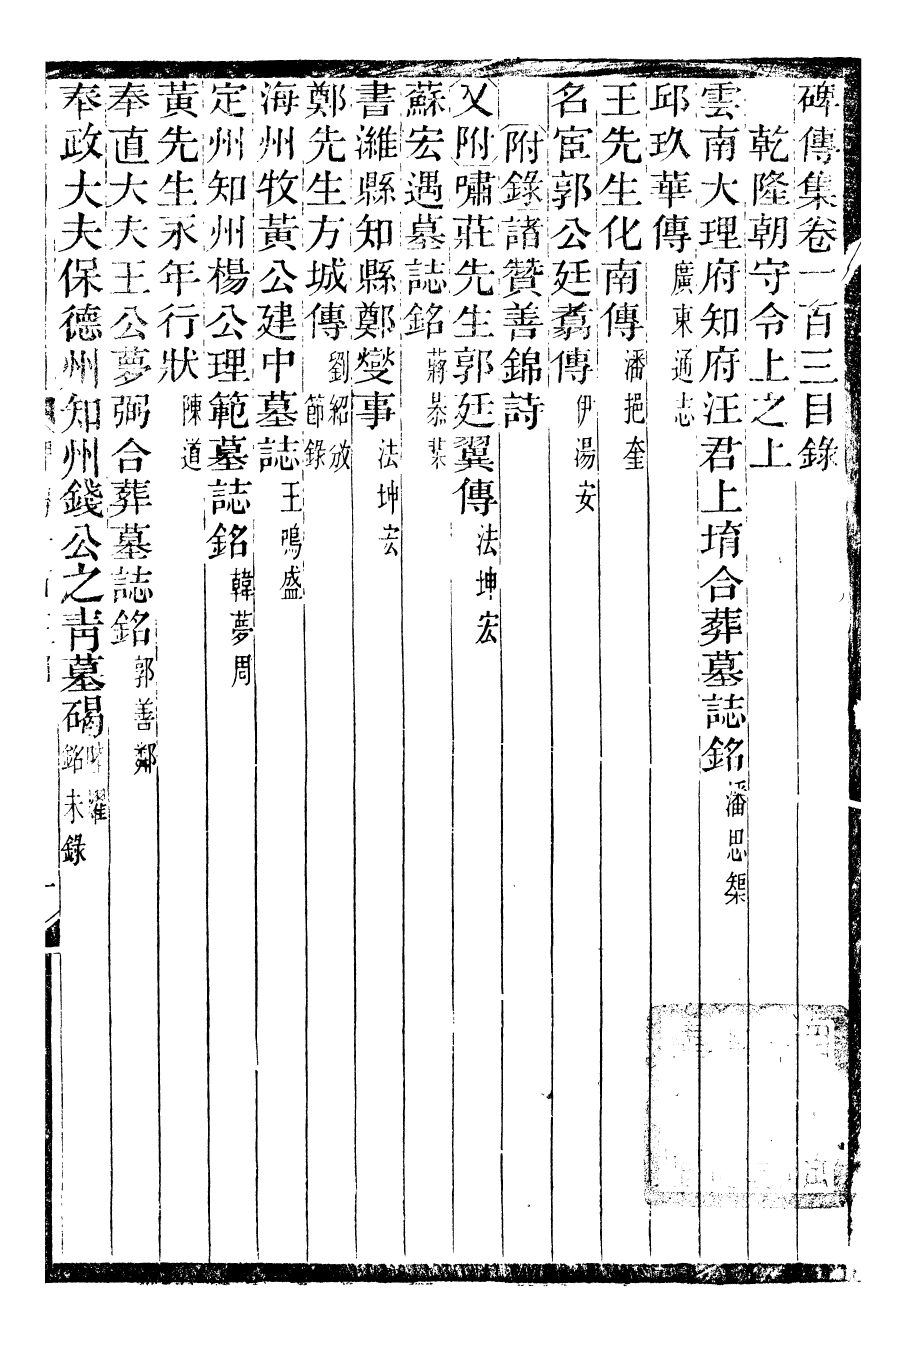 碑傳集卷一百三目錄
乾隆朝守令上之上
雲南大理府知府汪君上堉合葬墓誌銘 潘思榘
邱玖華傳 廣東通志
王先生化南傳 潘挹奎
名宦郭公廷翥傳 伊湯安
附錄諸贊善錦詩
又附嘯莊先生郭廷翼傳 法坤宏
蘇宏遇墓誌銘 蔣恭棐
書濰縣知縣鄭燮事 法坤宏
鄭先生方城傳 劉紹攽節錄
海州牧黃公建中墓誌 王鳴盛
定州知州楊公理範墓誌銘 韓夢周
黃先生永年行狀 陳道
奉直大夫王公夢弼合葬墓誌銘 郭善鄰
奉政大夫保德州知州錢公之青墓碣 陸燿 銘未錄